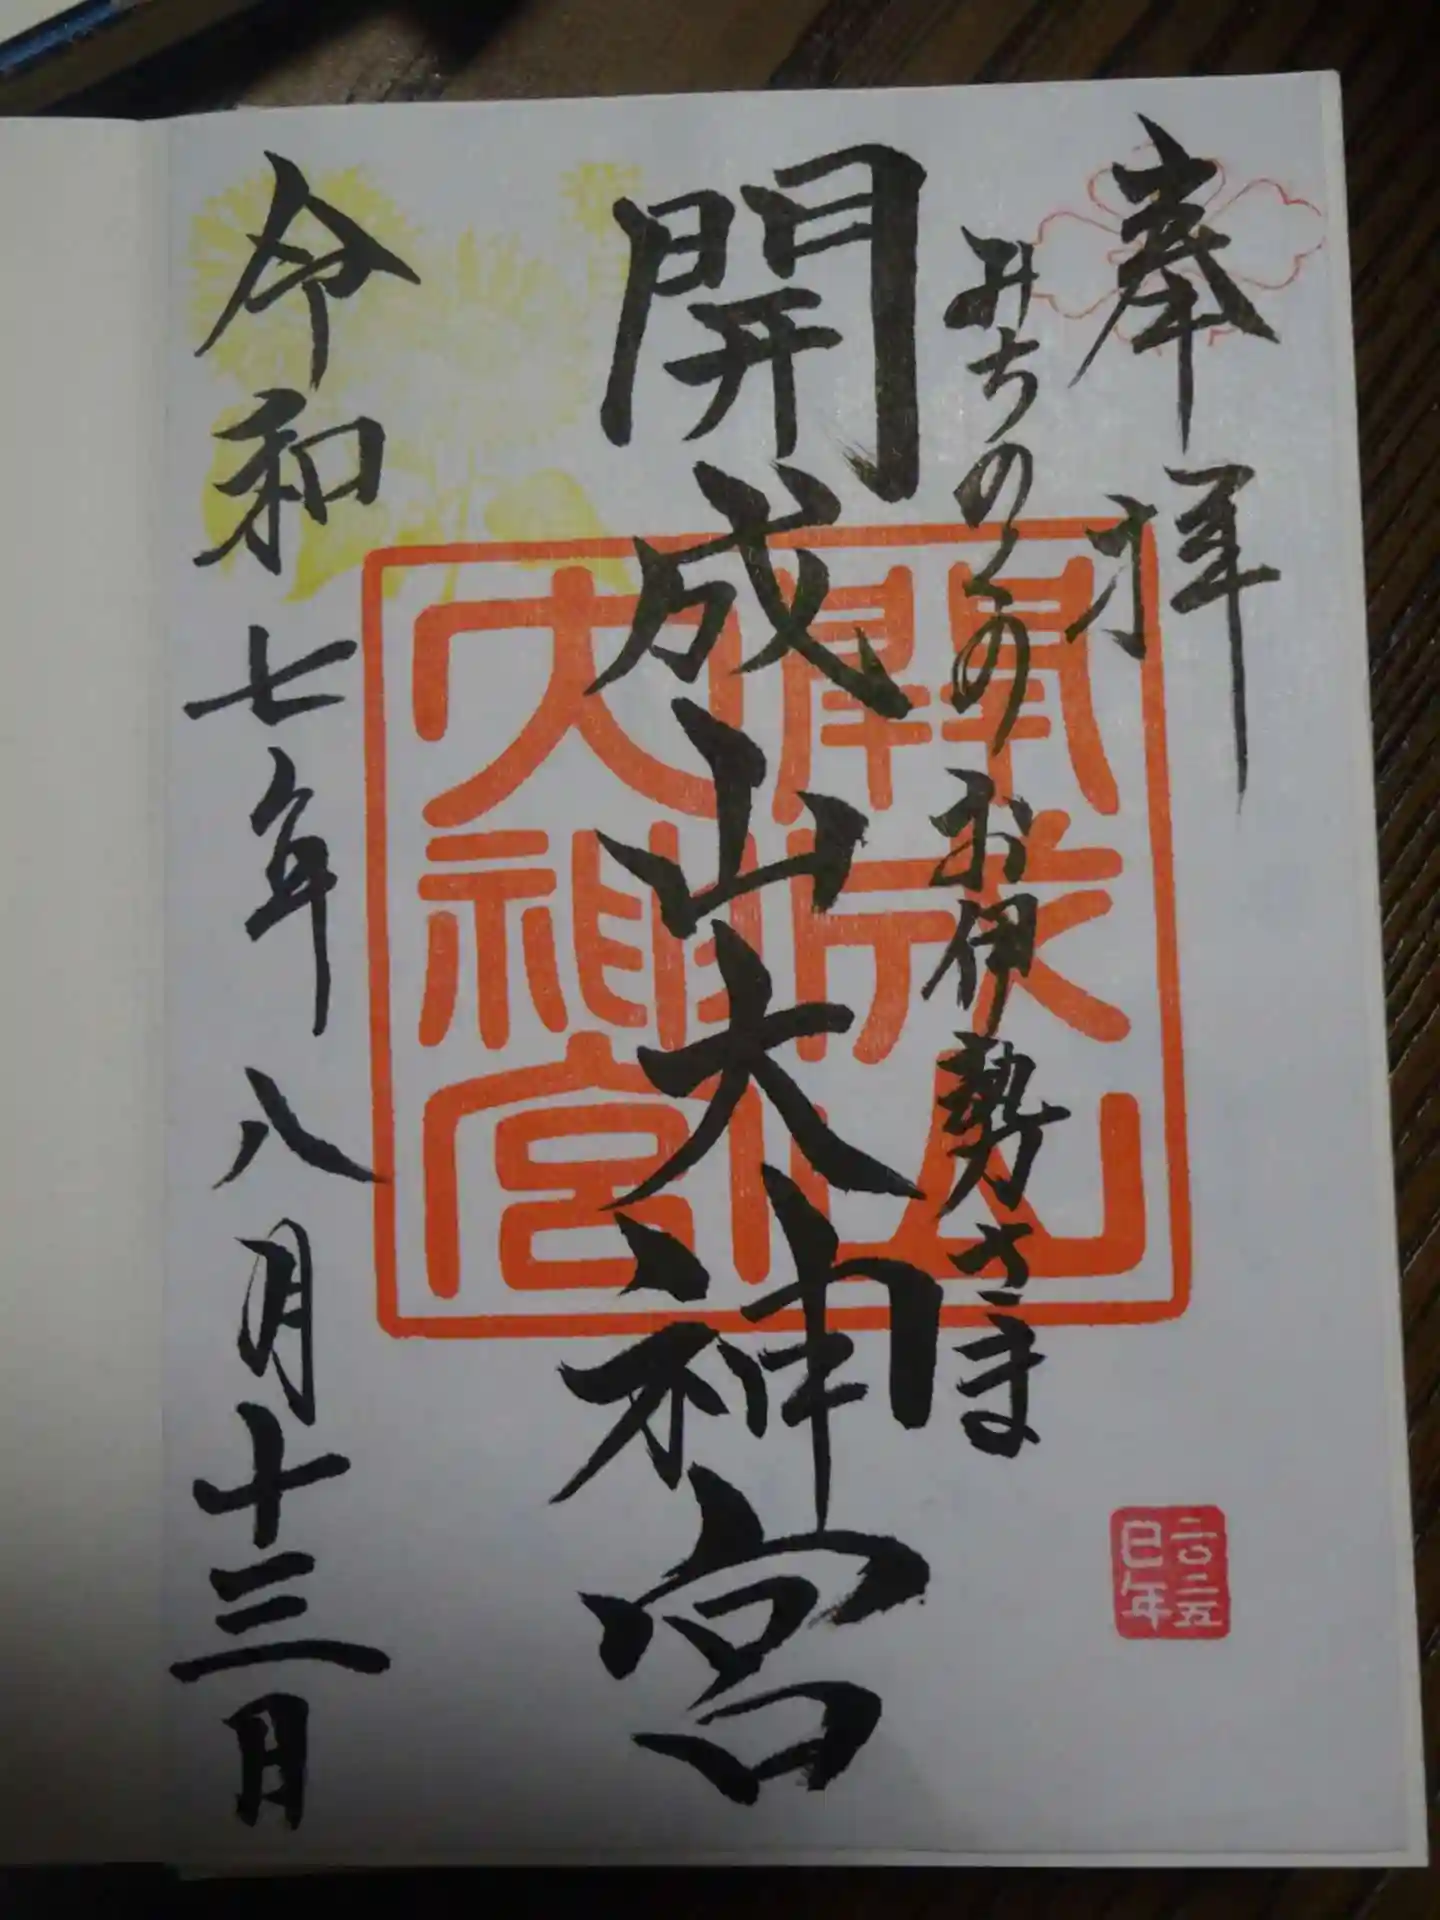 奉拝
みちのくのお伊勢さま
開成山大神宮
開成山
大神宮
令和七年八月十三日
二〇二五
巳年